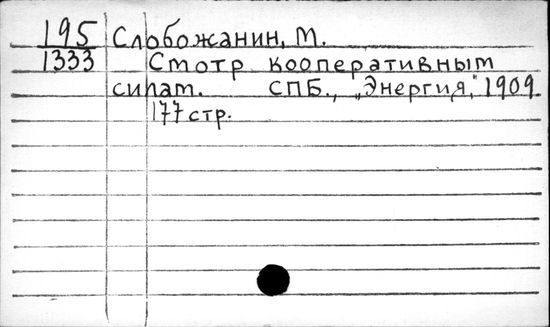 195 Слобожанин, М.
1333 Смотр кооперативным
силам. СПБ., „Энергия," 1909.
177 стр.